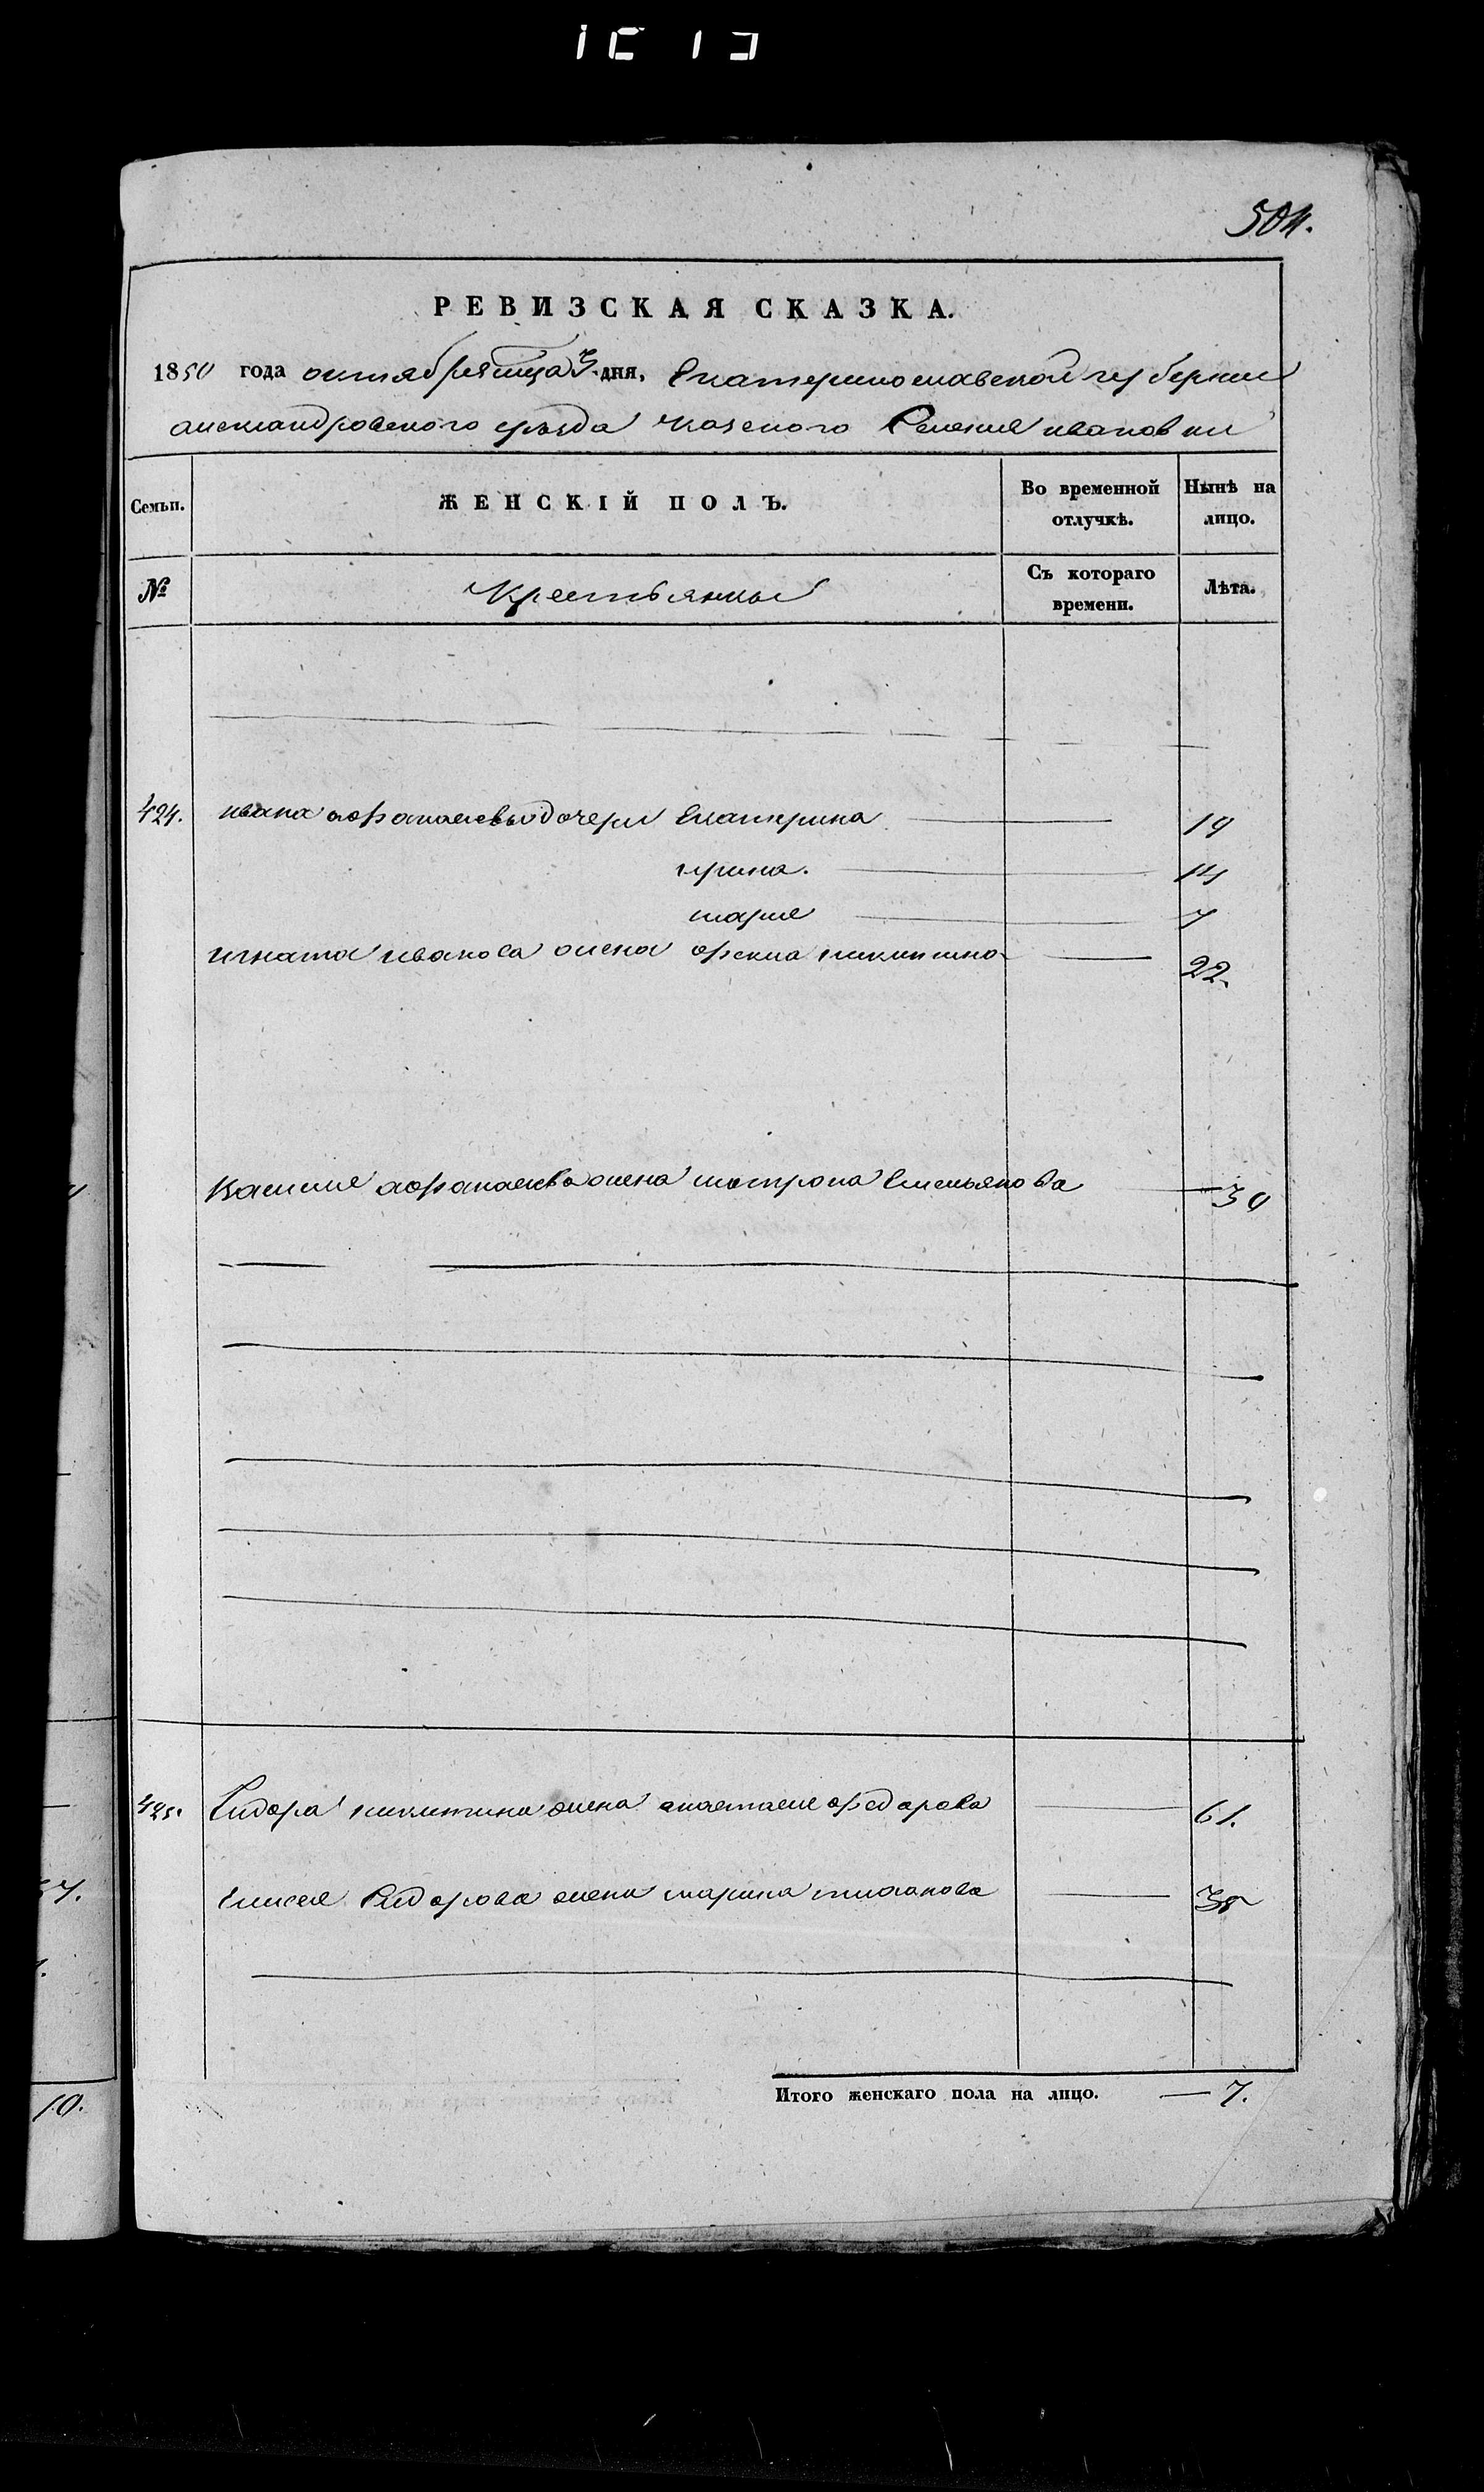 504.
РЕВИЗСКАЯ СКАЗКА.
1850 года октября мца 3 дня, Екатеринославской губернии
александровского уезда казеного Селения ивановки
Семьи.
ЖЕНСКІЙ ПОЛЪ.
Во временной отлучкѣ.
Нынѣ на лицо.
№
Крестьяны
Съ котораго времени.
Лѣта.
424. ивана афанасиевы дочери Екатерина 19
ирина. 14
марие 7
игната иванова жена фекла никитина 22.
Василие афанасиева жена матрона Емельянова 30
425. Сидора никитина жена анастасие федорова 61.
Елисея Сидорова жена марина 38
Итого женскаго пола на лицо. — 7.
10.